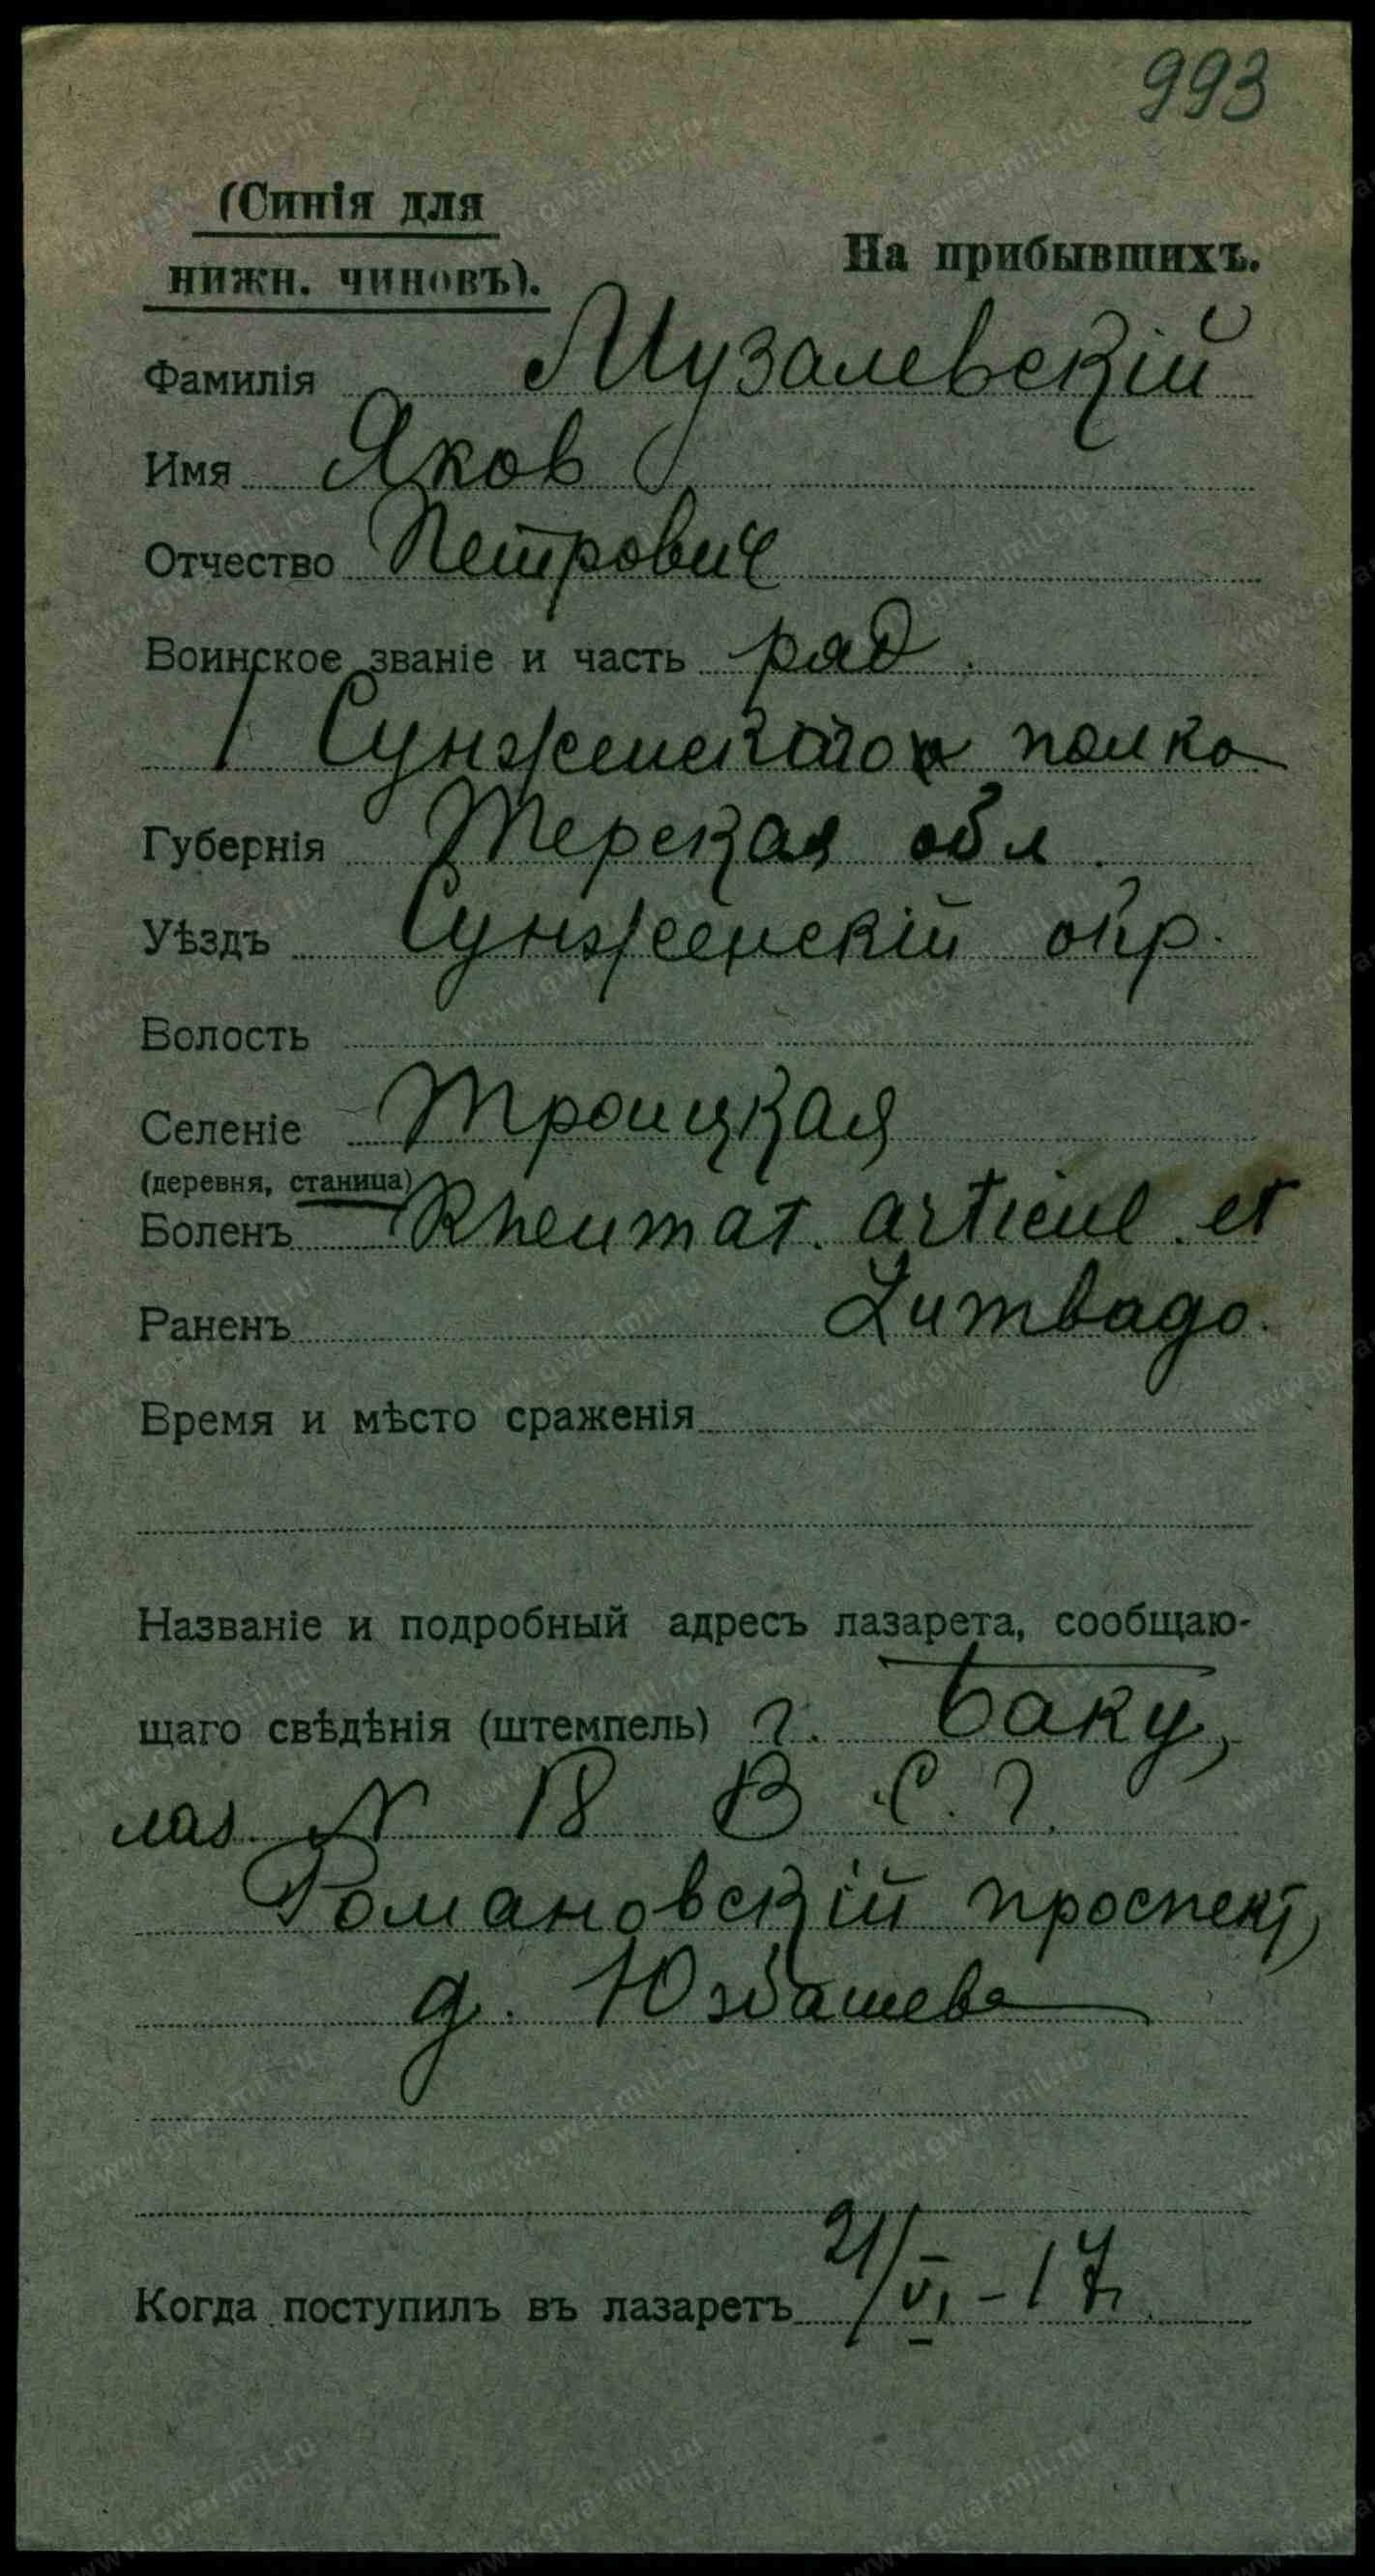 993
(Синія для
нижн. чиновъ).
На прибывшихъ.
Фамилія Музалевскій
Имя Яков
Отчество Петрович
Воинское званіе и часть ряд.
1 Сунженского полка
Губернія Терская обл.
Уѣздъ Сунженскій окр.
Волость
Селеніе Троицкая
(деревня, станица)
Боленъ Rheumat. articul. et
Раненъ Lumbago.
Время и мѣсто сраженія
Названіе и подробный адресъ лазарета, сообщаю-
щаго свѣдѣнія (штемпель) г. Баку,
лаз. N 18 В. С. Г.
Романовскій проспект,
д. Юзбашева
Когда поступилъ въ лазаретъ 21/VI - 17